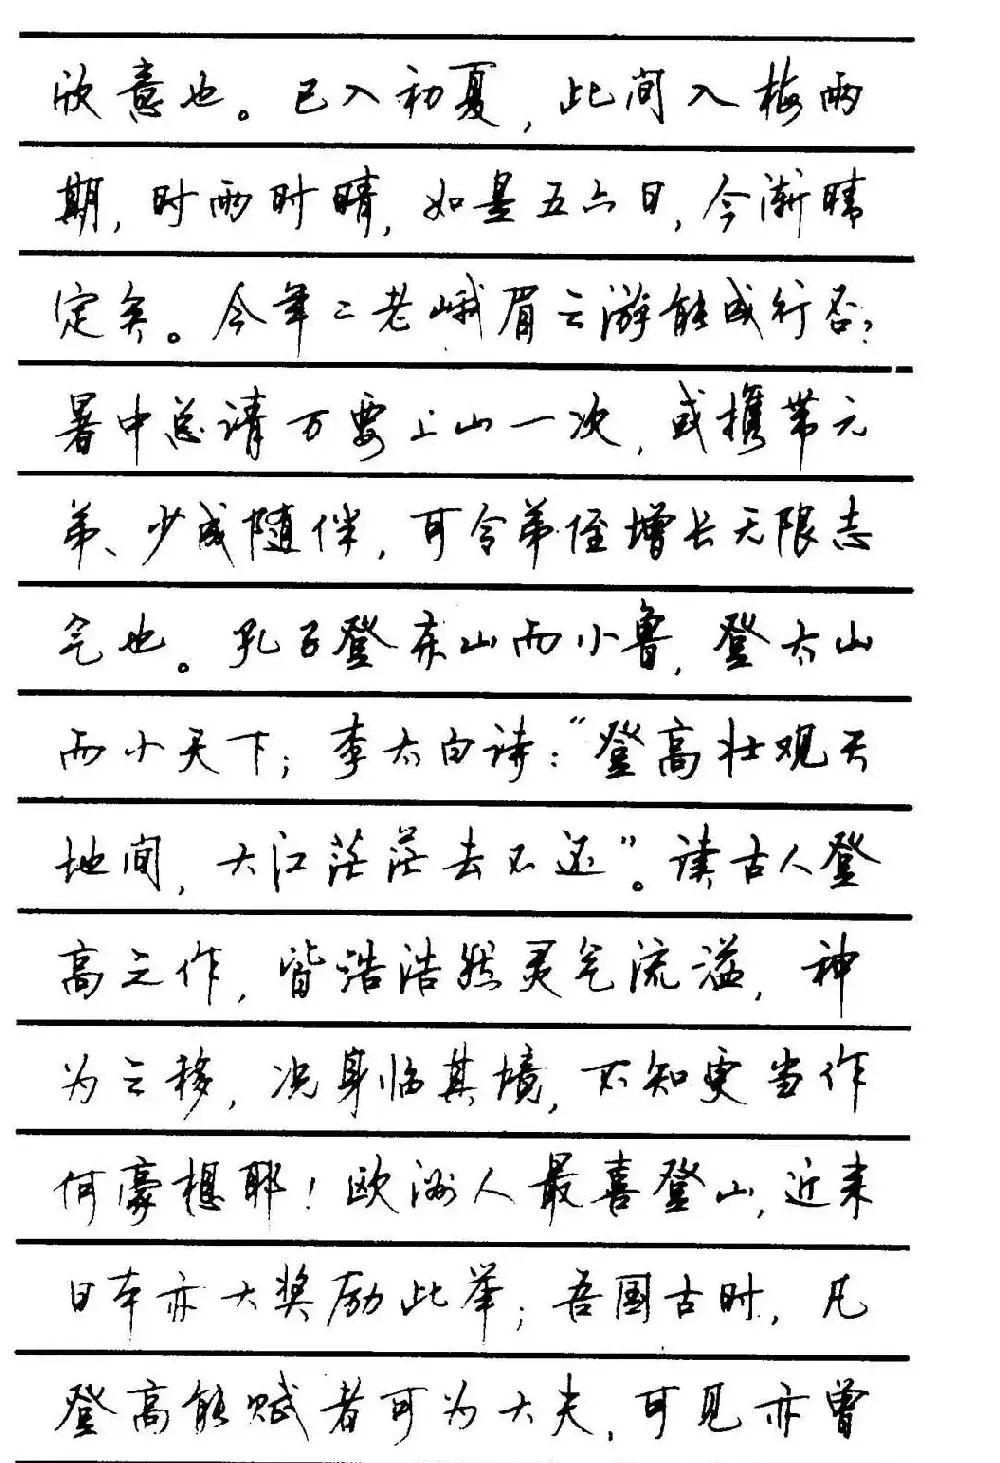 欣意也。已入初夏，此间入梅雨
期，时雨时晴，如是五六日，今渐晴
定矣。今年二老峨眉云游能成行否？
暑中总请万要上山一次，或携带元
弟、少成随伴，可令弟侄增长无限志
气也。孔子登东山而小鲁，登太山
而小天下；李太白诗：“登高壮观天
地间，大江茫茫去不还”。读古人登
高之作，皆浩浩然灵气流溢，神
为之移，况身临其境，不知更当作
何豪想耶！欧洲人最喜登山，近来
日本亦大奖励此举；吾国古时，凡
登高能赋者可为大夫，可见亦曾